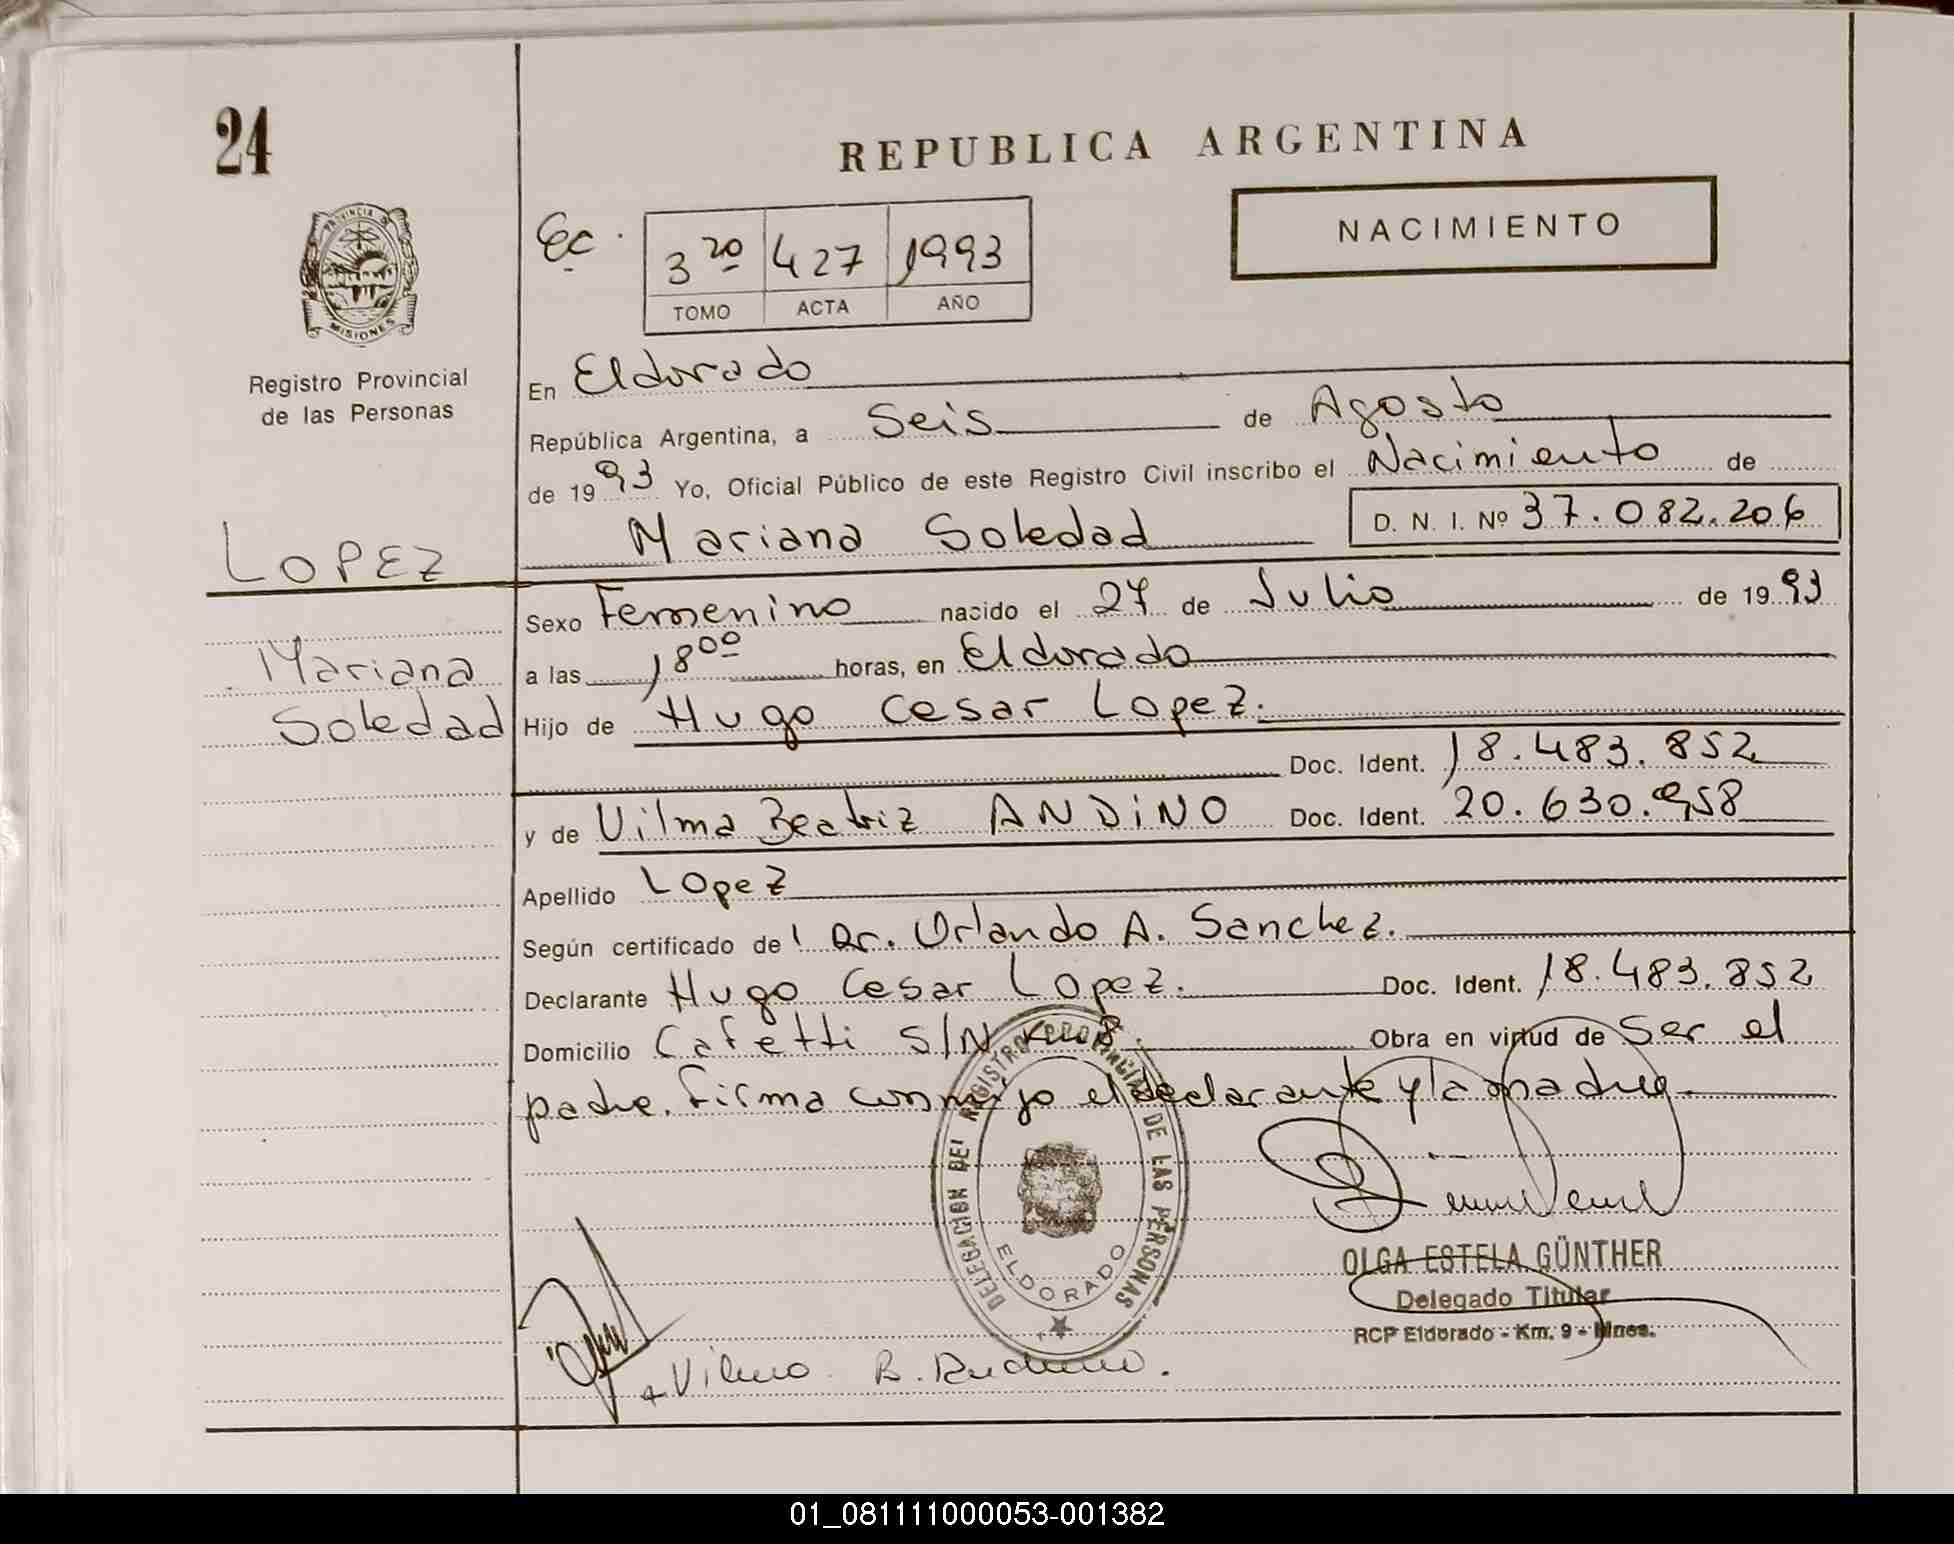 24
REPUBLICA ARGENTINA
NACIMIENTO
PROVINCIA DE
MISIONES
Registro Provincial
de las Personas
Ec.
3ro 427 1993
TOMO ACTA AÑO
En Eldorado
República Argentina, a Seis de Agosto
de 1993 Yo, Oficial Público de este Registro Civil inscribo el Nacimiento de
Mariana Soledad D. N. I. Nº 37.082.206
LOPEZ
Sexo Femenino nacido el 27 de Julio de 1993
Mariana
a las 18 00 horas, en Eldorado
Soledad
Hijo de Hugo Cesar Lopez.
Doc. Ident. 18.483.852
y de Vilma Beatriz ANDINO Doc. Ident. 20.630.958
Apellido Lopez
Según certificado de Dr. Orlando A. Sanchez.
Declarante Hugo Cesar Lopez. Doc. Ident. 18.483.852
Domicilio Cafetti S/N Km 8. Obra en virtud de Ser el
padre. Firma conmigo el declarante y la madre.
DELEGACION DEL REGISTRO PROVINCIAL DE LAS PERSONAS
ELDORADO
OLGA ESTELA GÜNTHER
Delegado Titular
RCP Eldorado - Km. 9 - Mnes.
Vilma B. Andino.
01_081111000053-001382